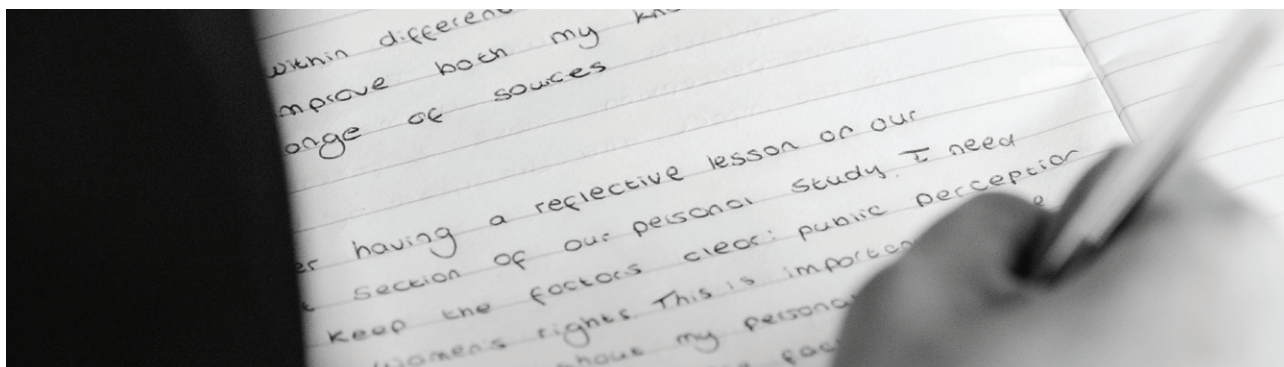 within different
improve both my
range of sources
having a reflective lesson on our
section of our personal study. I need
keep the factors clear: public perception
women's rights. This is important
my personal